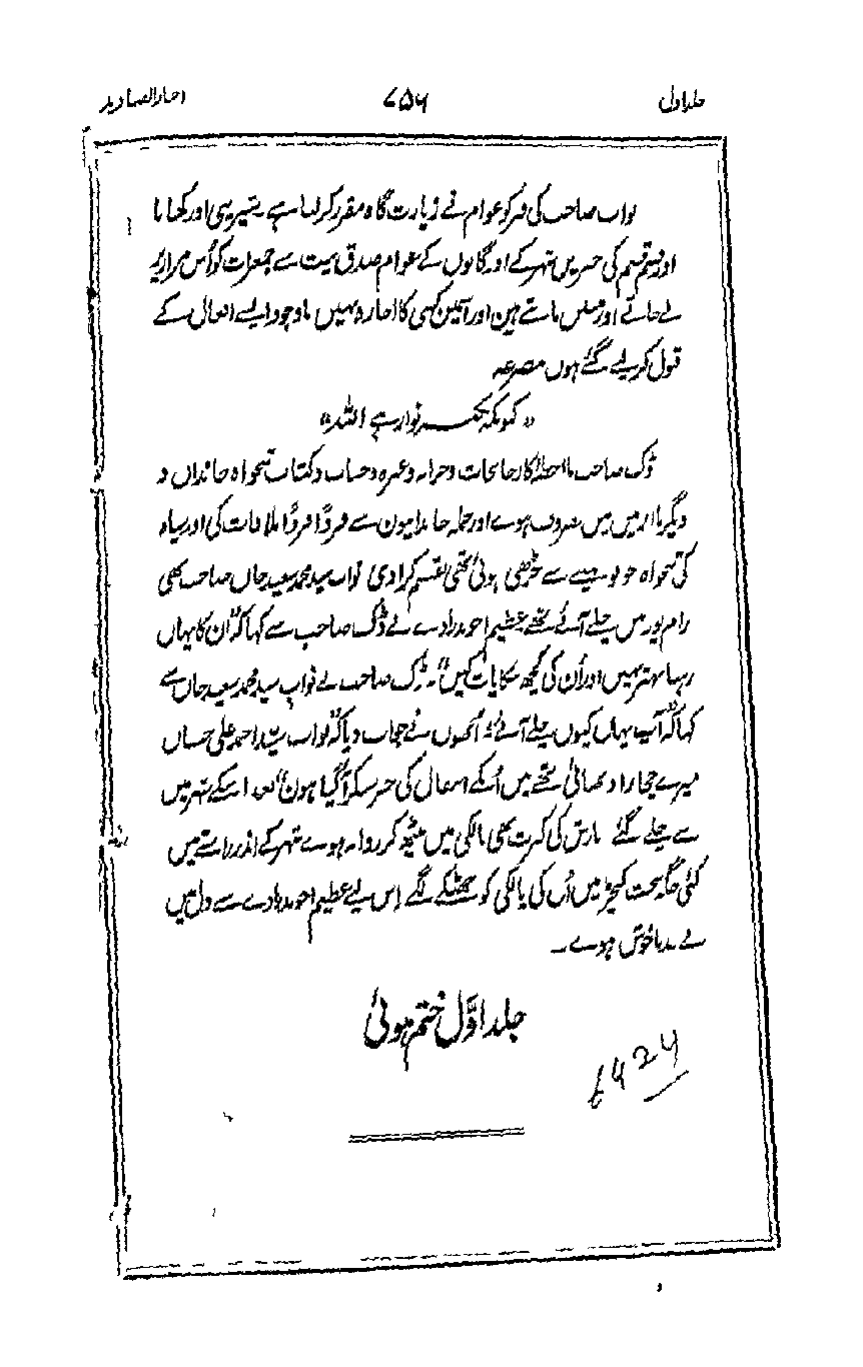 جلد اول ۷۵۶ اخبار الصنادید
نواب صاحب کی قبر کو عوام نے زیارت گاہ مقرر کر لیا ہے شیرینی اور کھانا
اور قسم قسم کی چیزیں شہر کے اور گانوں کے عوام صدق نیت سے جمعرات کو اُس مزار پر
لے جاتے اور منتیں مانتے ہین اور آئین کہی کا اجارہ نہیں باوجود ایسے افعال کے
قبول کر لیے گئے ہوں مصرعہ
کہ نکتہ نواز ہے اللہ
ڈک صاحب ملاحظۂ کارخانجات وخزانہ وغیرہ وحساب وکتاب تنخواہ خاندان و
دیگر ملازمین میں مصروف ہوے اور جملہ خاندانیون سے فرداً فرداً ملاقات کی اور سپاہ
کی تنخواہ جو نو مہینے سے چڑھی ہوئی تھی تقسیم کرادی نواب سید محمد سعید خاں صاحب بھی
رام پور میں چلے آئے تھے عظیم اخوندزادے نے ڈک صاحب سے کہا کہ اُن کا یہاں
رہنا بہتر نہیں اور اُن کی کچھ شکایات کیں۔ ڈک صاحب نے نواب سید محمد سعید خاں سے
کہا کہ آپ یہاں کیوں چلے آئے اُنھوں نے جواب دیا کہ نواب سید احمد علی خساں
میرے چچا زاد بھائی تھے میں اُنکے انتقال کی خبر سنکر آ گیا ہون اسکے شہر میں
سے چلے گئے بارش کی کثرت تھی پالکی میں بیٹھ کر روانہ ہوے شہر کے اندر راستے میں
کئی جگہ سخت کیچڑ میں اُن کی پالکی کو جھٹکے لگے اس لیے عظیم اخوندزادے سے دل میں
ناخوش ہوے۔
جلد اوّل ختم ہوئی